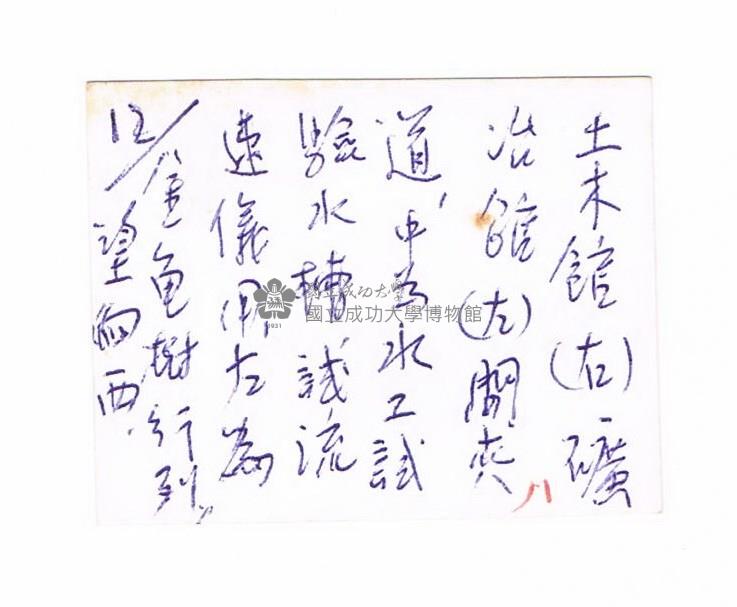 土木館(右)礦
冶館(左)間夾
道,中為水工試
驗水槽試流
速儀用左為
12/金龟樹行列
望向西.
八
國立成功大學
國立成功大學博物館
1931